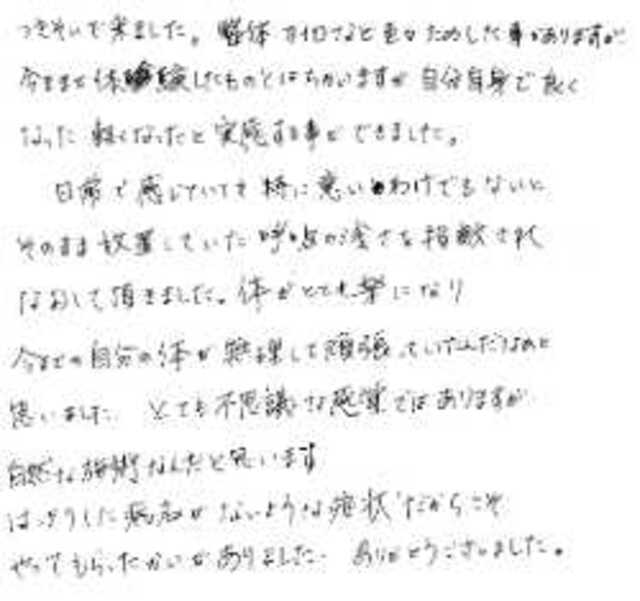 つきそいで来ました。整体 カイロなど色々ためした事がありますが
今まで体験したものとはちがいますが自分自身で良く
なった 軽くなったと実施する事ができました。
日常で感じていても特に悪いわけでもないと
そのまま放置していた呼吸の浅さを指敵され
なおして頂きました。体がとても楽になり
今までの自分の体が無理して頑張っていたんだなあと
思いました とても不思議な感覚ではありますが
自然な施術なんだと思います
はっきりした病名がないような症状だからこそ
やってもらったかいがありました。ありがとうございました。